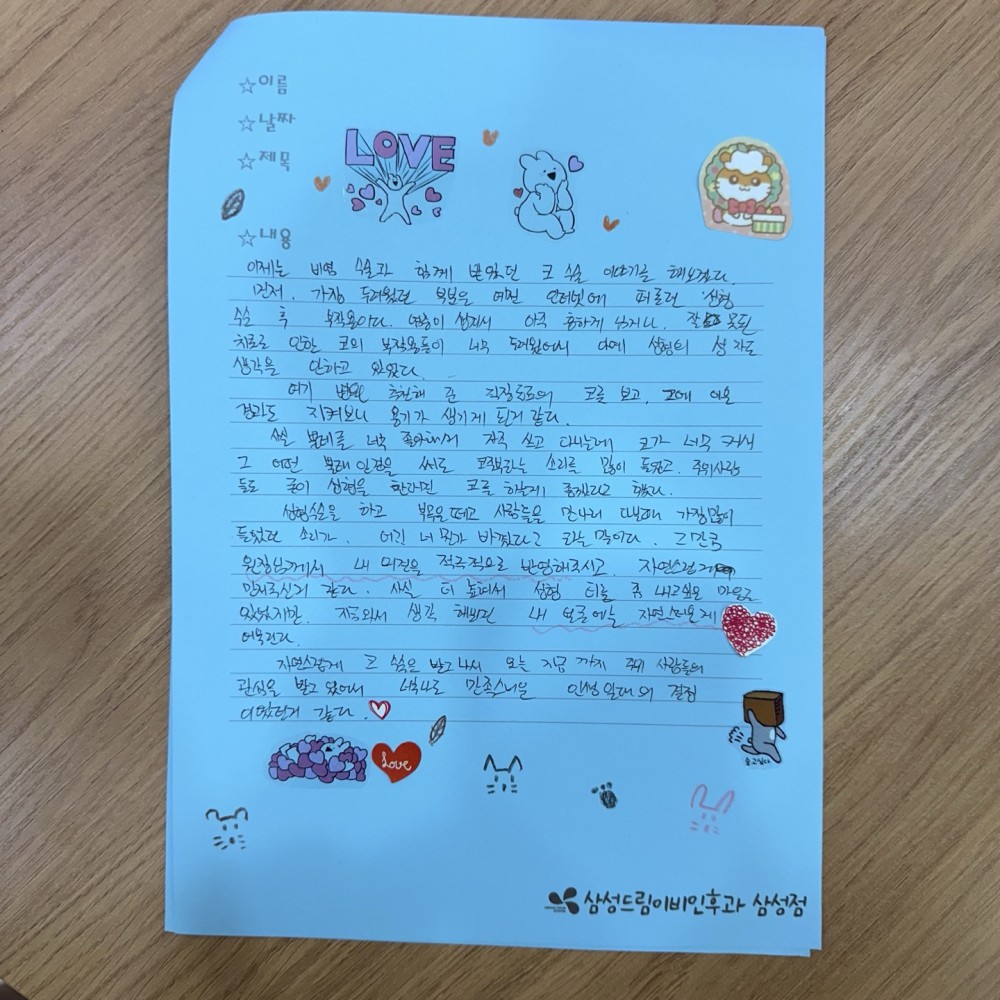 ☆이름
☆날짜
☆제목
LOVE
☆내용
이제는 비염 수술과 함께 받았던 코 수술 이야기를 해보겠다.
먼저, 가장 두려웠던 부분은 여전 인터넷에 떠돌던 성형
수술 후 부작용이다. 염증이 생겨서 아주 흉하게 되거나, 잘 못된
치료로 인한 코의 부작용들이 너무 두려웠어서 아예 성형의 성 자도
생각을 안하고 있었다.
여기 병원 추천해 준 직장동료의 코를 보고, 그에 대한
경과도 지켜보니 용기가 생기게 된거 같다.
사실 뿔테를 너무 좋아해서 자주 쓰고 다니는데 코가 너무 커서
그 어떤 뿔테 안경을 써도 코주부라는 소리를 많이 들었고, 주위사람
들도 굳이 성형을 한다면 코를 하는게 좋겠다고 했었다.
성형수술을 하고 부목을 떼고 사람들을 만나러 다닐때 가장많이
들었던 소리가, 어딘 너 뭔가 바꼈다고 하는 말이다. 그만큼
원장님께서 내 의견을 적극적으로 반영해주시고, 자연스럽게
만져주신거 같다. 사실 더 높여서 성형 티를 좀 내고싶은 마음도
있었지만, 지금와서 생각 해보면 내 얼굴에는 자연스러운게
어울린다.
자연스럽게 코 수술을 받고 나서 오는 지금 까지 주위 사람들의
관심을 받고 있어서 너무나도 만족스러운 인생일대의 결정
이었던거 같다.
Love
삼성드림이비인후과 삼성점